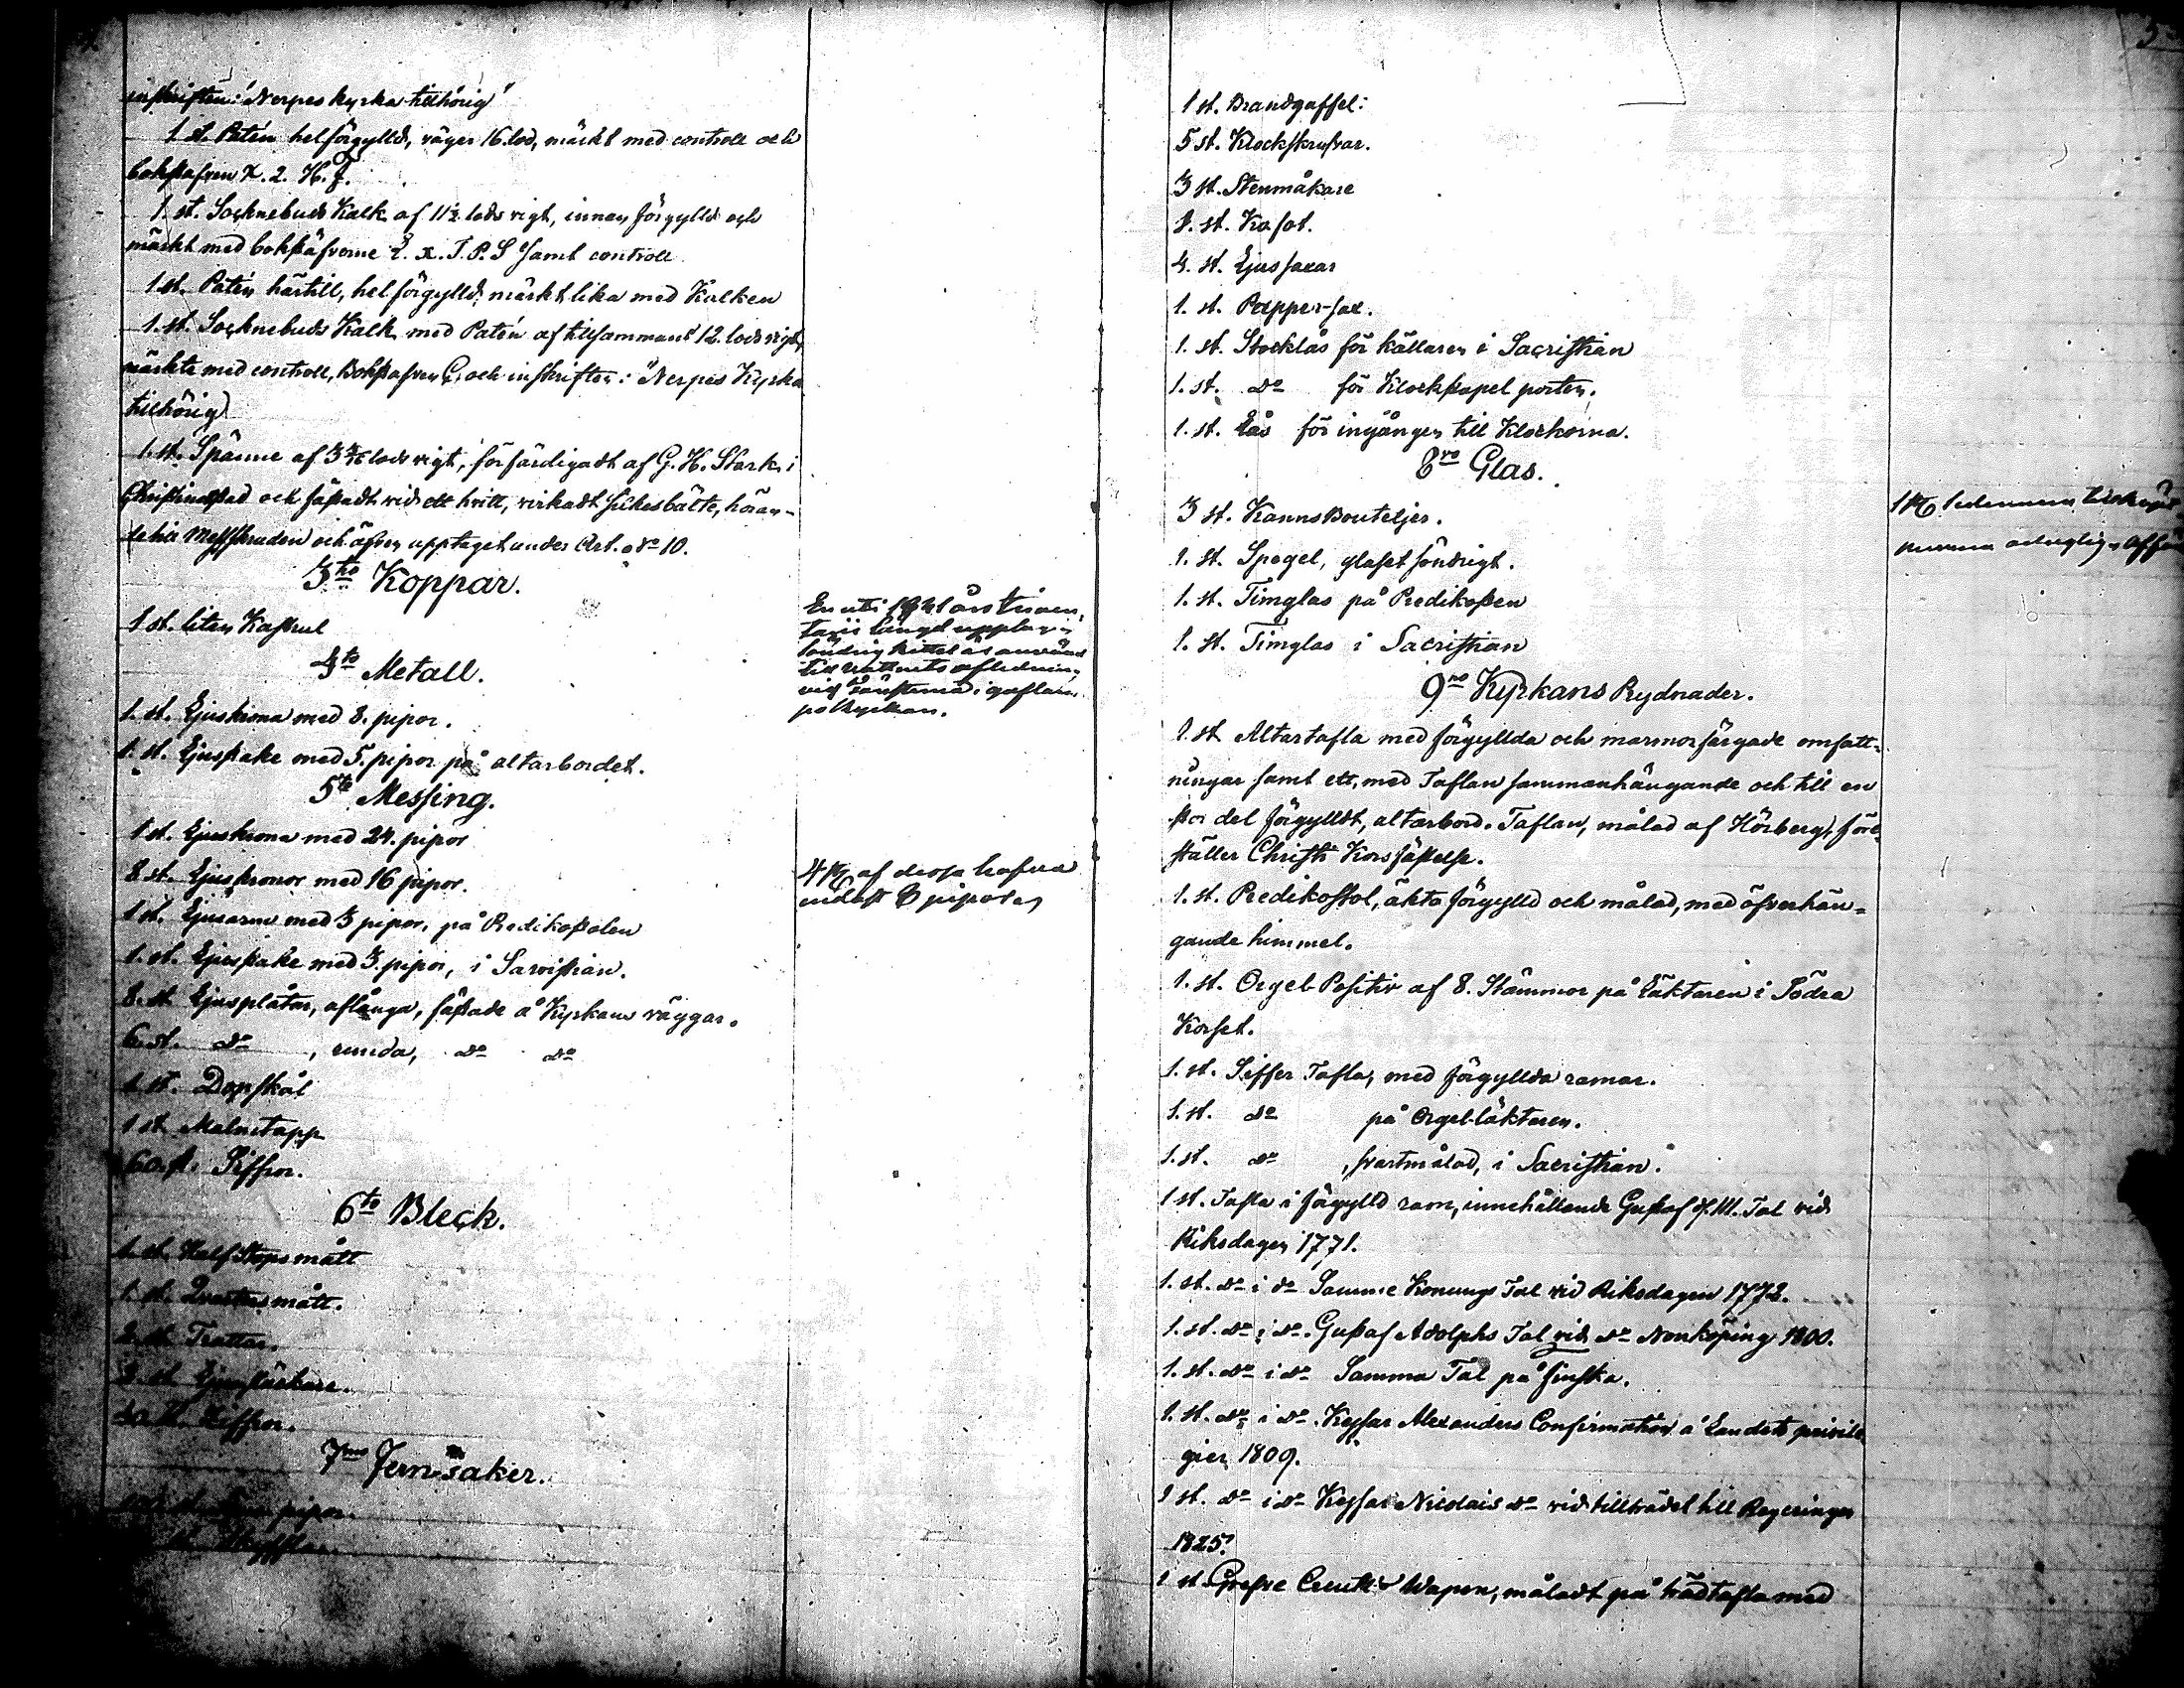 inskriften: "Nerpes kyrka tillhörig"
1 st. Patén helförgylld, väger 16. lod, märkt med controll och
bokstafven X. 2. H. F.
1. st. Socknebuds Kalk af 11½ lods vigt, innan förgylld och
märkt med bokstäfverne E. x. I. P. S samt controll
1. st. Patén härtill, helförgylld, märkt lika med Kalken
1. st. Socknebuds Kalk med Patén af tillsammans 12. lods vigt,
märkte med controll, Bokstafven G, och inskriften: "Nerpes Kyrka
tillhörig"
1. st. Spänne af lods vigt, förfärdigadt af G. H. Stark i
Christinestad och fästadt vid ett hvitt, virkadt silkesbälte, höran-
de till Messkruden och äfven upptaget under Art. No 10.
3tio Koppar.
1 st. liten Kastrul
En uti 1821 års Inven
tarii längd upptagen
söndrig kittel är använd
till vattnets afledning
vid fönsterna i gaflarne
på kyrkan.
4to Metall.
1. st. Ljuskrona med 8. pipor.
1. st. Ljusstake med 5. pipor på altarbordet.
5to Messing.
1 st. Ljuskrona med 24. pipor
8 st. Ljuskronor med 16 pipor.
4 st. af dessa hafva
endast 8 pipor
1 st. Ljusarm med 3 pipor, på Predikostolen
1. st. Ljusstake med 3. pipor, i Sacristian.
8. st. Ljusplåtar, aflånga, fästade å Kyrkans väggar.
6. st. do , runda, do do
1. st. Dopskål
1 st. Malmtapp
60. st. Siffror.
6to Bleck.
1. st. Half Stops mått
1. st. Qvarters mått.
2. st. Trattar.
2. st. Ljussläckare.
st. Ziffror.
7mo Jernsaker.
pipor.
st. Skyfflar
5
1 st. Brandgaffel:
5 st. Klockskrufvar.
3 st. Stenmåkare
1. st. Kofot.
4. st. Ljussaxar
1. st. Papper-sax.
1. st. Stocklås för källaren i Sacristian
1. st. do för Klockstapel porten.
1. st. Lås för ingången till Klockorna.
8vo Glas.
3 st. Kanns Bouteljer.
1. st. Spegel, glaset söndrigt.
1. st. Timglas på Predikosten
1. st. Timglas i Sacristian
9no Kyrkans Prydnader.
1. st Altartafla med förgyllda och marmorfärgade omfatt-
ningar samt ett, med Taflan sammanhängande och till en
stor del förgylldt, altarbord. Taflan, målad af Hörberg, före-
ställer Christi Korsfästelse.
1. st. Predikostol, äkta förgylld och målad, med öfverhän-
gande himmel.
1. st. Orgel Positiv af 8. Stämmor på Läktaren i Södra
Korset.
1. st. Siffer Tafla, med förgyllda ramar.
1. st. do på Orgel-läktaren.
1. st. do , svartmålad, i Sacristian.
1 st. Tafla i förgylld ram, innehållande Gustaf III. Tal vid
Riksdagen 1771.
1. st. do i do Samme Konungs Tal vid Riksdagen 1772.
1. st. do i do. Gustaf Adolphs Tal vid do Norrköping 1800.
1. st. do i do Samma Tal på finska.
1. st. do i do. Kejsar Alexanders Confirmation å Landets privile
gier 1809.
1 st. do i do Kejsar Nicolais do vid tillträdet till Regeringen
1825.
1 st. Grefve Creutz's Wapen, måladt på trädtafla med